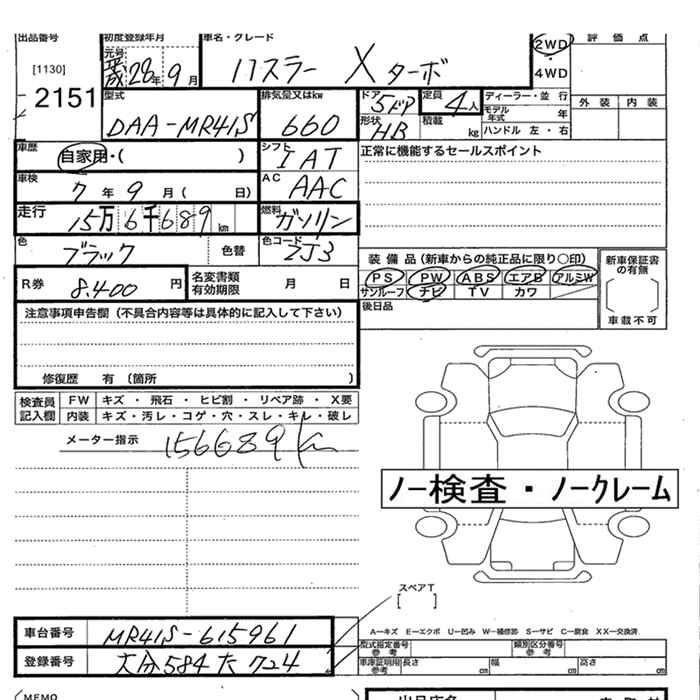 出品番号 初度登録年月 車名・グレード 2WD 評価点
[1130] 元号 平成 28年 9月 ハスラー Xターボ ・ 4WD
2151 型式 排気量又はkw ドア 5ドア 定員 4人 ディーラー・並行 外装 内装
DAA-MR41S 660 形状 HB 積載 kg モデル年式 年
ハンドル 左・右
車歴 自家用・( ) シフト IAT 正常に機能するセールスポイント
車検 7年 9月 ( 日) AC AAC
走行 15万6千689km 燃料 ガソリン
色 ブラック 色替 色コード ZJ3 装備品(新車からの純正品に限り〇印) 新車保証書の有無
R券 8.400円 名変書類有効期限 月 日 PS PW ABS エアB アルミW
サンルーフ ナビ TV カワ
後日品 車載不可
注意事項申告欄(不具合内容等は具体的に記入して下さい)
修復歴 有(箇所 )
検査員記入欄 FW キズ・飛石・ヒビ割・リペア跡・X要
内装 キズ・汚レ・コゲ・穴・スレ・キレ・破レ
メーター指示 156689km
ノー検査・ノークレーム
スペアT
[ ]
車台番号 MR41S-615961 A－キズ E－エクボ U－凹み W－補修跡 S－サビ C－腐食 XX－交換済
登録番号 大分584た724 型式指定番号 参考 類別区分番号 参考
車庫証明用 参考 長さ cm 幅 cm 高さ cm
MEMO 出品店名